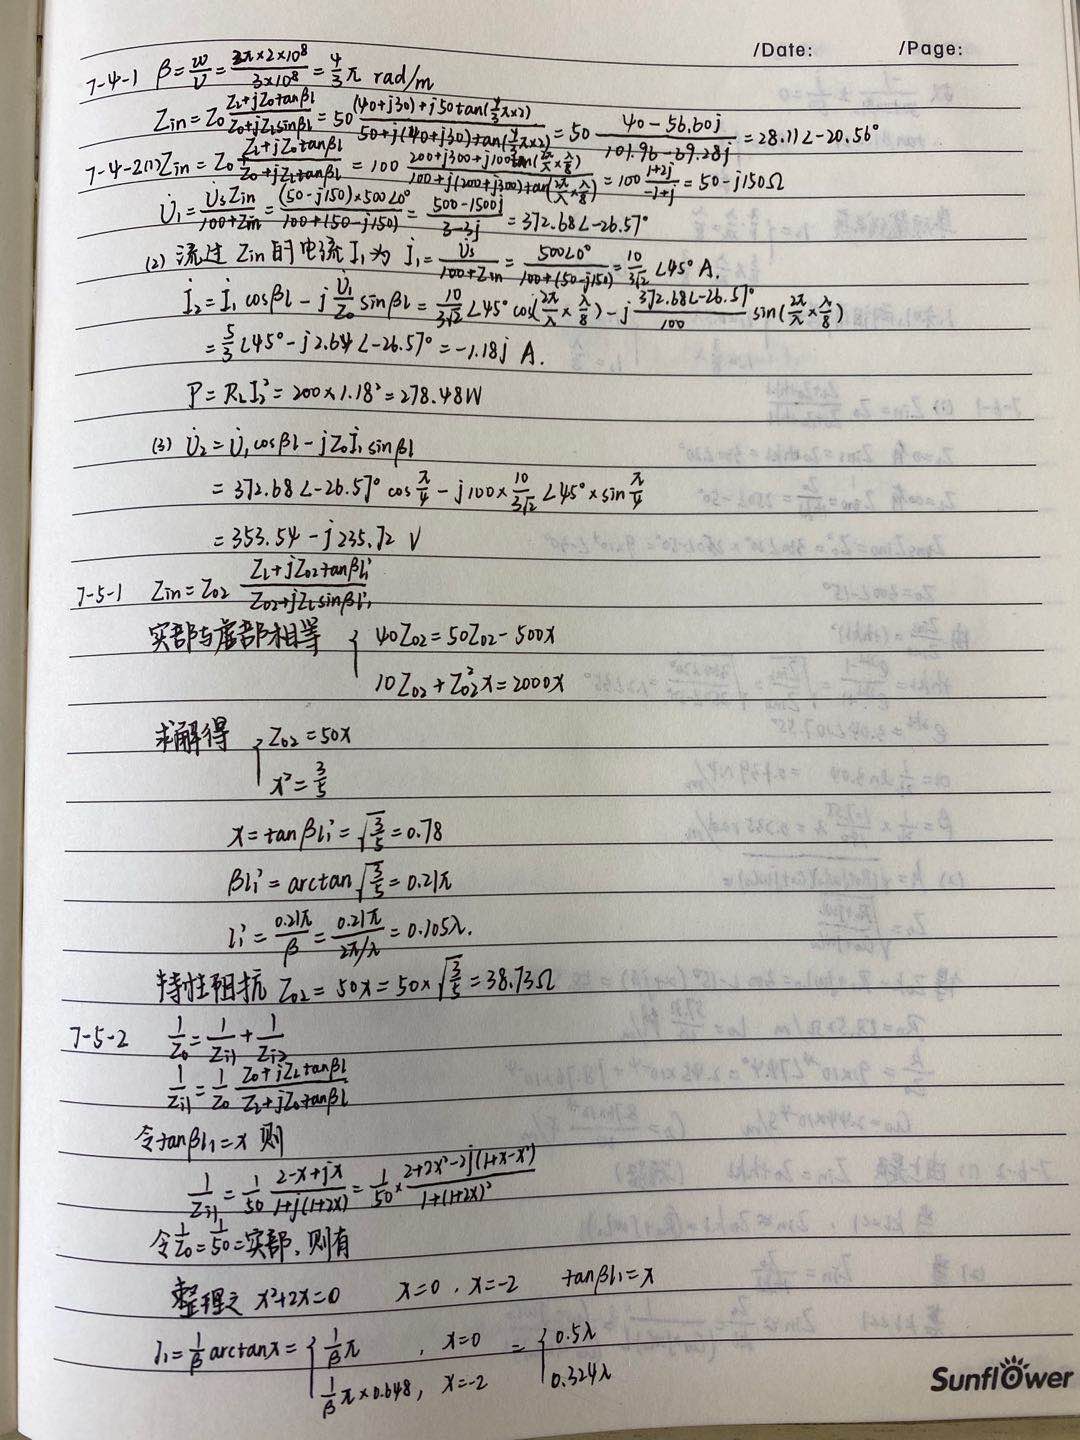 /Date: /Page:
7-4-1 β=ω/v=2π×2×10⁸/3×10⁸=4/3π rad/m
Zin=Z₀ (ZL+jZ₀tanβl)/(Z₀+jZLsinβl)=50 ((40+j30)+j50tan(4/3π×2))/(50+j(40+j30)tan(4/3π×2))=50 (40-56.60j)/(101.96-69.28j)=28.11∠-20.56°
7-4-2(1)Zin=Z₀ (ZL+jZ₀tanβl)/(Z₀+jZLtanβl)=100 (200+j300+j100tan(2π/λ×λ/8))/(100+j(200+j300)tan(2π/λ×λ/8))=100 (1+2j)/(-1+j)=50-j150Ω
U̇₁=U̇sZin/(100+Zin)=(50-j150)×500∠0°/(100+(50-j150))=(500-1500j)/(3-3j)=372.68∠-26.57°
(2) 流过Zin的电流I₁为 İ₁=U̇s/(100+Zin)=500∠0°/(100+(50-j150))=10/3√2 ∠45° A.
İ₂=İ₁cosβl-j U̇₁/Z₀ sinβl=10/3√2 ∠45° cos(2π/λ×λ/8)-j 372.68∠-26.57°/100 sin(2π/λ×λ/8)
=5/3∠45°-j2.64∠-26.57°=-1.18j A.
P=RLI₂²=200×1.18²=278.48W
(3) U̇₂=U̇₁cosβl-jZ₀İ₁sinβl
=372.68∠-26.57° cos π/4-j100×10/3√2 ∠45°×sin π/4
=353.54-j235.72 V
7-5-1 Zin=Z₀₂ (ZL+jZ₀₂tanβl₁')/(Z₀₂+jZLsinβl₁')
实部与虚部相等 { 40Z₀₂=50Z₀₂-500x
10Z₀₂+Z₀₂²x=2000x
求解得 { Z₀₂=50x
x²=3/5
x=tanβl₁'=√3/5=0.78
βl₁'=arctan√3/5=0.21π
l₁'=0.21π/β=0.21π/(2π/λ)=0.105λ.
特性阻抗 Z₀₂=50x=50×√3/5=38.73Ω
7-5-2 1/Z₀=1/Zi1+1/Zi2
1/Zi1=1/Z₀ (Z₀+jZLtanβl)/(ZL+jZ₀tanβl)
令tanβl₁=x 则
1/Zi1=1/50 (2-x+jx)/(1+j(1+2x))=1/50×(2+2x²-2j(1+x-x²))/(1+(1+2x)²)
令1/Z₀=1/50=实部,则有
整理之 x²+2x=0 x=0.x=-2 tanβl₁=x
l₁=1/β arctanx={ 1/β π , x=0 ={ 0.5λ
1/β π×0.648, x=-2 0.324λ
Sunflower